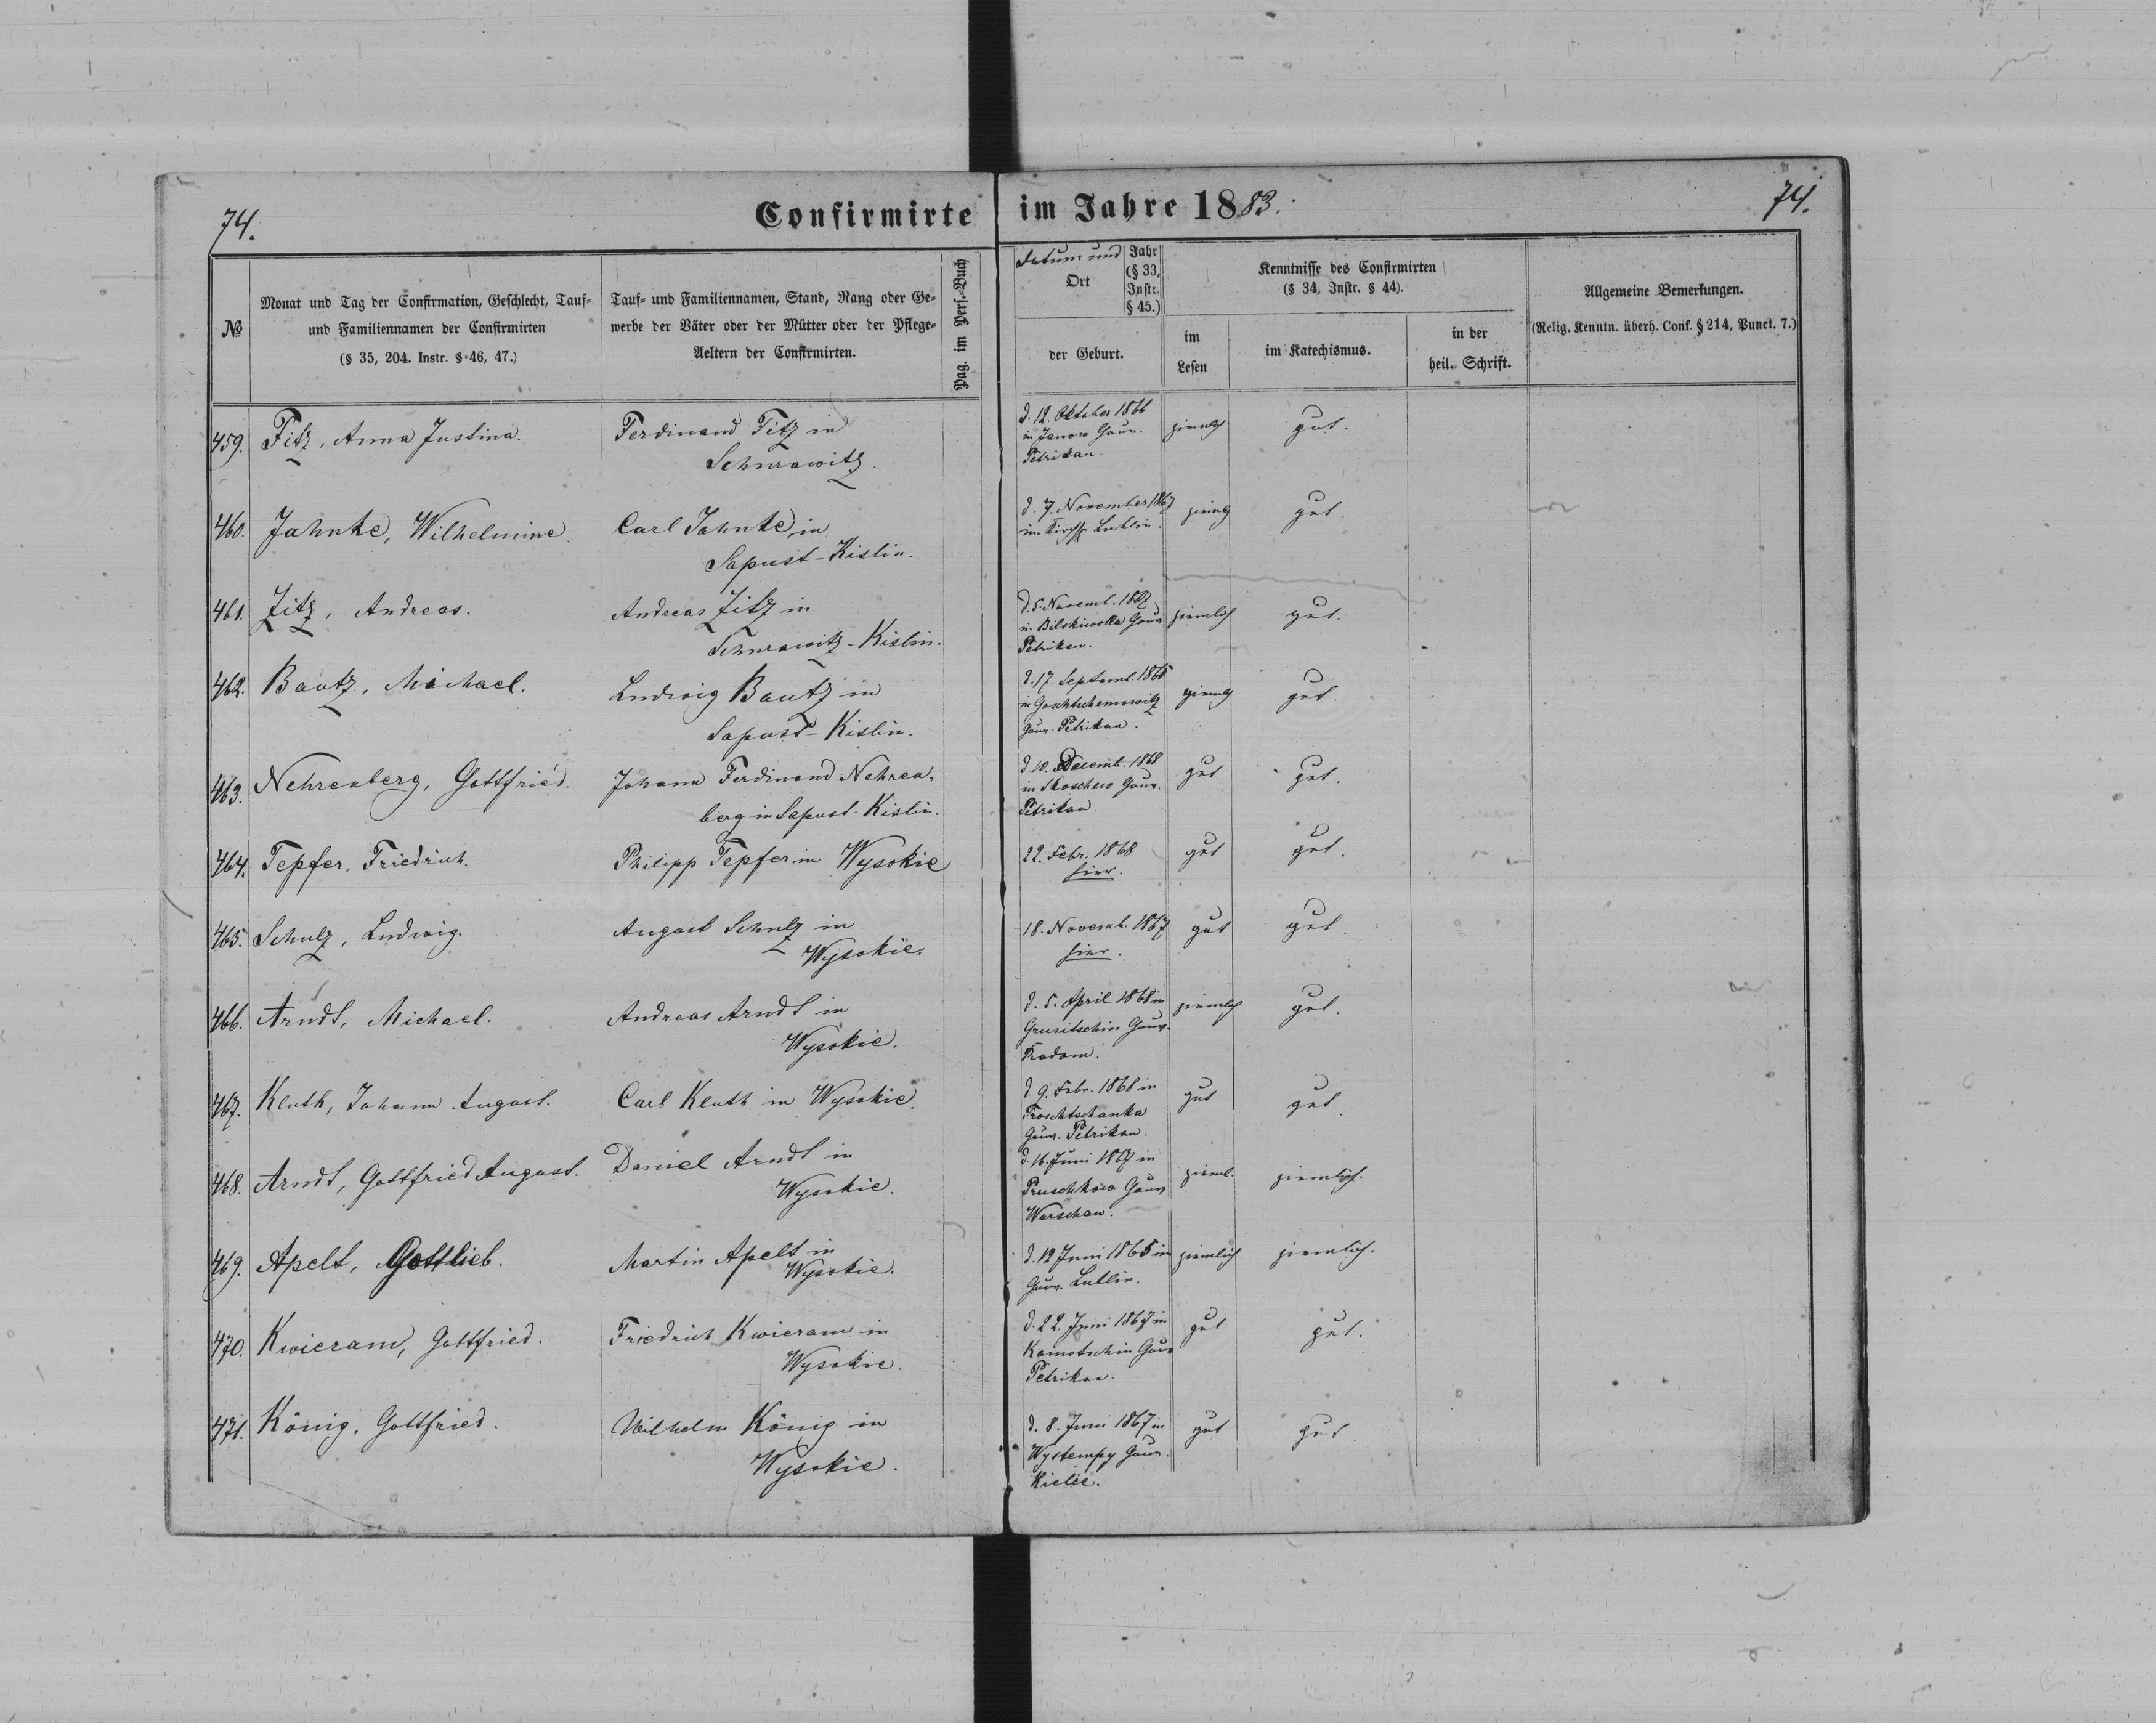 74.
Confirmirte im Jahre 1883.
74.
№
Monat und Tag der Confirmation, Geschlecht, Tauf-
und Familiennamen der Confirmirten
(§ 35, 204. Instr. § 46, 47.)
Tauf- und Familiennamen, Stand, Rang oder Ge-
werbe der Väter oder der Mütter oder der Pflege-
Aeltern der Confirmirten.
Pag. im Pers.-Buch
Datum und
Ort
Jahr
(§ 33,
Instr.
§ 45.)
der Geburt.
Kenntnisse des Confirmirten
(§ 34, Instr. § 44).
im
Lesen
im Katechismus.
in der
heil. Schrift.
Allgemeine Bemerkungen.
(Relig. Kenntn. überh. Conf. § 214, Punct. 7.)
459. Fitz, Anna Justina.
Ferdinand Fitz in
Schurawitz.
d. 12. Oktober 1866
in Janow Gouv.
Petrikau.
ziemlich
gut.
460. Jahnke, Wilhelmine.
Carl Jahnke, in
Sapust-Kislin.
d. 7. November 1867
im Kirchsp. Lublin.
ziemlich
gut.
461. Zitz, Andreas.
Andreas Zitz in
Schurawitz-Kislin.
d. 5. Novemb. 1867
in Gouv
Petrikau.
ziemlich
gut.
462. Bautz, Michael.
Ludwig Bautz in
Sapust-Kislin.
d. 17. Septemb. 1865
in
Gouv. Petrikau.
ziemlich
gut.
463. Nehrenberg, Gottfried.
Johann Ferdinand Nehren-
berg in Sapust-Kislin.
d. 10. Decemb. 1868
in Gouv.
Petrikau.
gut
gut.
464. Tepfer, Friedrich.
Philipp Tepfer in Wysokie
22. Febr. 1868
hier.
gut
gut.
465. Schulz, Ludwig.
August Schulz in
Wysokie.
18. Novemb. 1867
hier.
gut
gut.
466. Arndt, Michael.
Andreas Arndt in
Wysokie.
d. 5. April 1868 in
Gruritschin Gouv.
Radom.
ziemlich
gut.
467. Kluth, Johann August.
Carl Kluth in Wysokie.
d. 9. Febr. 1868 in
Troschtschanka
Gouv. Petrikau.
gut
gut.
468. Arndt, Gottfried August.
Daniel Arndt in
Wysokie.
d. 16. Juni 1867 in
Pruschkow Gouv
Warschau.
zieml.
ziemlich.
469. Apelt, Gottlieb.
Martin Apelt in
Wysokie.
d. 12 Juni 1865 im
Gouv. Lublin.
ziemlich
ziemlich.
470. Kwieram, Gottfried.
Friedrich Kwieram in
Wysokie.
d. 22. Juni 1867 in
Kamotschin Gouv
Petrikau.
gut
gut.
471. König, Gottfried.
Wilhelm König in
Wysokie.
d. 8. Juni 1867 in
Wystempy Gouv.
Kielce.
gut
gut.